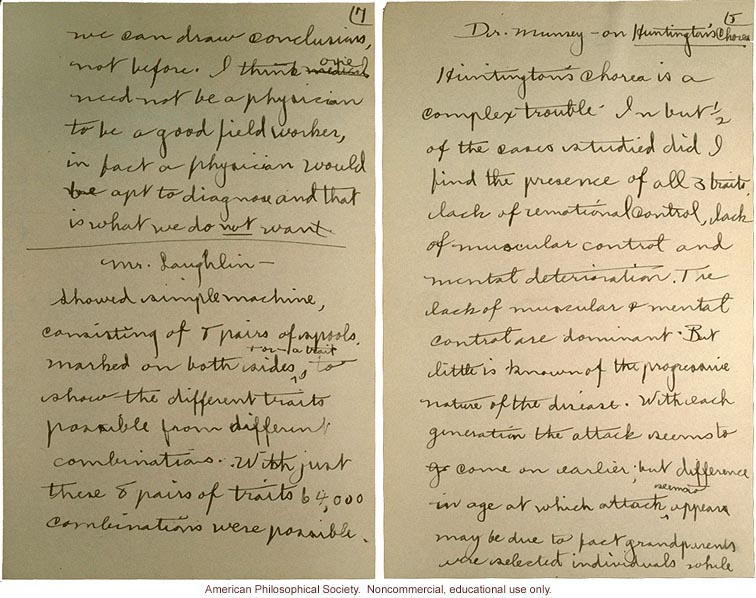 17
we can draw conclusions,
not before. I think one
need not be a physician
to be a good field worker,
in fact a physician would
be apt to diagnose and that
is what we do not want.
Mr. Laughlin —
showed simple machine,
consisting of 8 pairs of spools.
marked on both sides, to
show the different traits
possible from different
combinations. With just
these 8 pairs of traits 64,000
combinations were possible.
5
Dr. Munsey - on Huntington's Chorea
Huntington's Chorea is a
complex trouble. In but 1/2
of the cases studied did I
find the presence of all 3 traits.
lack of emotional control, lack
of muscular control and
mental deterioration. The
lack of muscular & mental
control are dominant. But
little is known of the progressive
nature of the disease. With each
generation the attack seems to
go come on earlier; but difference
seems
in age at which attack appears
may be due to fact grandparents
were selected individuals while
American Philosophical Society. Noncommercial, educational use only.